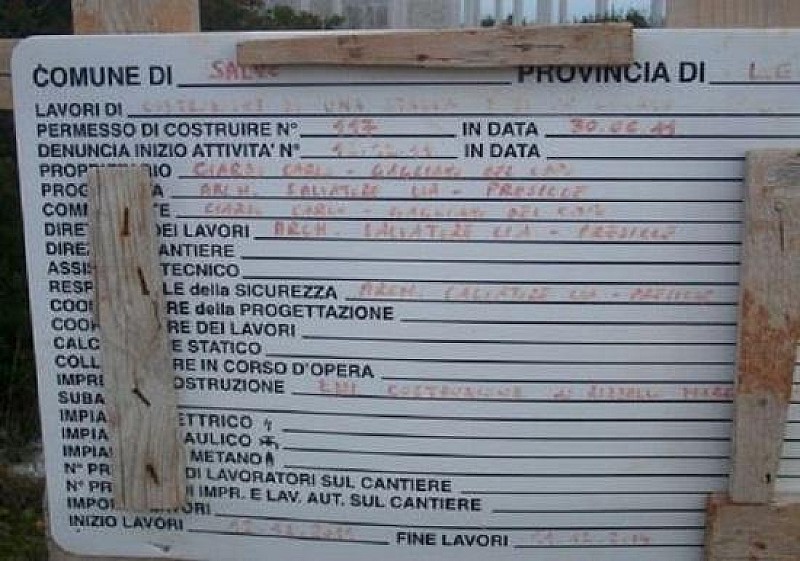 COMUNE DI SALVE PROVINCIA DI LE
LAVORI DI COSTRUZIONE DI UNA STALLA
PERMESSO DI COSTRUIRE N° 117 IN DATA 30.06.11
DENUNCIA INIZIO ATTIVITA' N° IN DATA
PROPRIETARIO CIARDI CARLO - GAGLIANO DEL CAPO
PROG TA ARCH. SALVATORE LIA - PRESICCE
COMM TE CIARDI CARLO - GAGLIANO DEL CAPO
DIRET DEI LAVORI ARCH. SALVATORE LIA - PRESICCE
DIREZ ANTIERE
ASSIS TECNICO
RESP LE della SICUREZZA ARCH. SALVATORE LIA - PRESICCE
COO RE della PROGETTAZIONE
COO RE DEI LAVORI
CALC E STATICO
COLL RE IN CORSO D'OPERA
IMPRE OSTRUZIONE COSTRUZIONE DI
SUBA
IMPIA ETTRICO
IMPIA AULICO
IMPIA METANO
N° PR DI LAVORATORI SUL CANTIERE
N° PR DI IMPR. E LAV. AUT. SUL CANTIERE
IMPO AVORI
INIZIO LAVORI 12.12.2011 FINE LAVORI 11.12.2014